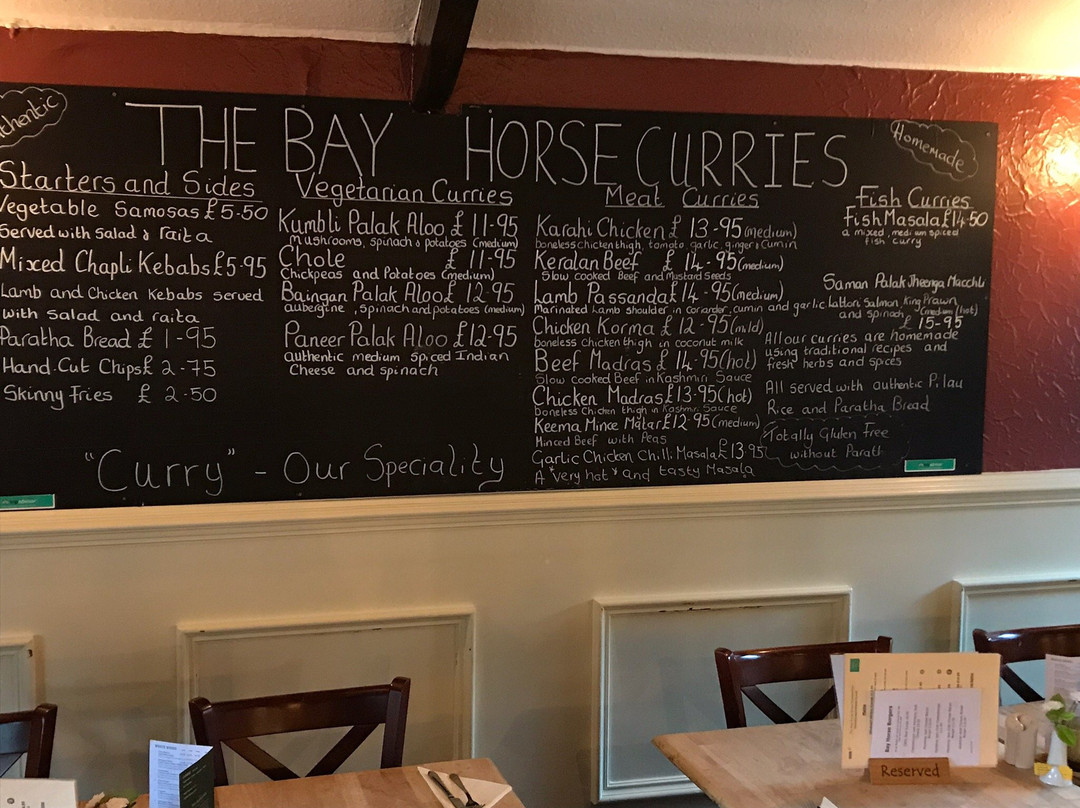 THE BAY HORSE CURRIES
Homemade
Starters and Sides
Vegetable Samosas £5-50
Served with Salad & raita
Mixed Chapli Kebabs £5-95
Lamb and Chicken Kebabs served
with salad and raita
Paratha Bread £ 1-95
Hand-Cut Chips £ 2-75
Skinny Fries £ 2-50
Vegetarian Curries
Kumbli Palak Aloo £ 11-95
mushrooms, spinach & potatoes (medium)
Chole £ 11-95
Chickpeas and Potatoes (medium)
Baingan Palak Aloo £ 12-95
aubergine, spinach and potatoes (medium)
Paneer Palak Aloo £12-95
authentic medium spiced Indian
Cheese and spinach
"Curry" - Our Speciality
Meat Curries
Karahi Chicken £ 13-95 (medium)
boneless chicken thigh, tomato, garlic, ginger & cumin
Keralan Beef £ 14-95 (medium)
Slow cooked Beef and Mustard Seeds
Lamb Passanda £14-95 (medium)
Marinated Lamb shoulder in coriander, cumin and garlic
Chicken Korma £ 12-95 (mild)
boneless Chicken thigh in coconut milk
Beef Madras £ 14-95 (hot)
Slow cooked Beef in Kashmiri Sauce
Chicken Madras £13-95 (hot)
boneless Chicken thigh in Kashmiri Sauce
Keema Mince Matar £12-95 (medium)
Minced Beef with Peas
Garlic Chicken Chilli Masala £ 13-95
A "very hot" and tasty Masala
Fish Curries
Fish Masala £14-50
a mixed, medium spiced
fish curry
Saman Palak Jheenga Macchli
Salmon, King Prawn
and spinach (medium/hot)
£ 15-95
All our curries are homemade
using traditional recipes and
fresh herbs and spices
All served with authentic Pilau
Rice and Paratha Bread
Totally Gluten Free
without Parath
Reserved